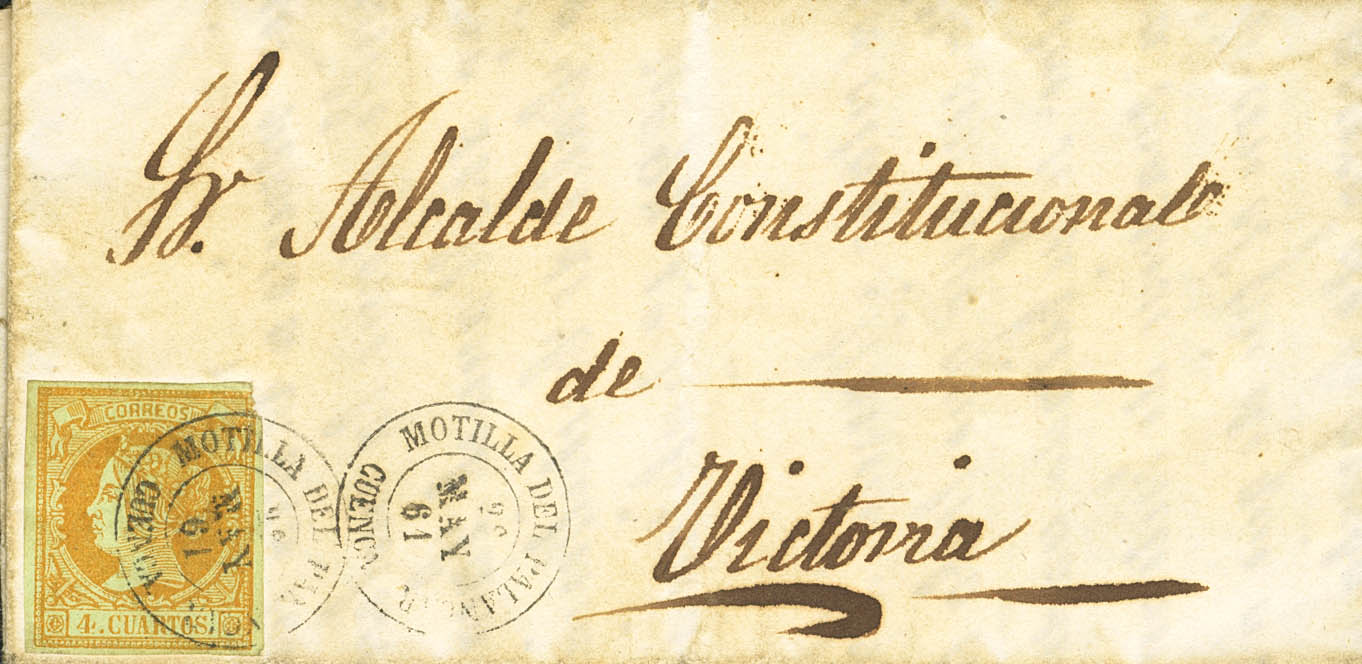 Sr. Alcalde Constitucional
de
Victoria
CORREOS
4. CUARTOS
MOTILLA DEL
CUENCA
MAY
61
MOTILLA DEL PALANCAR
CUENCA
MAY
61